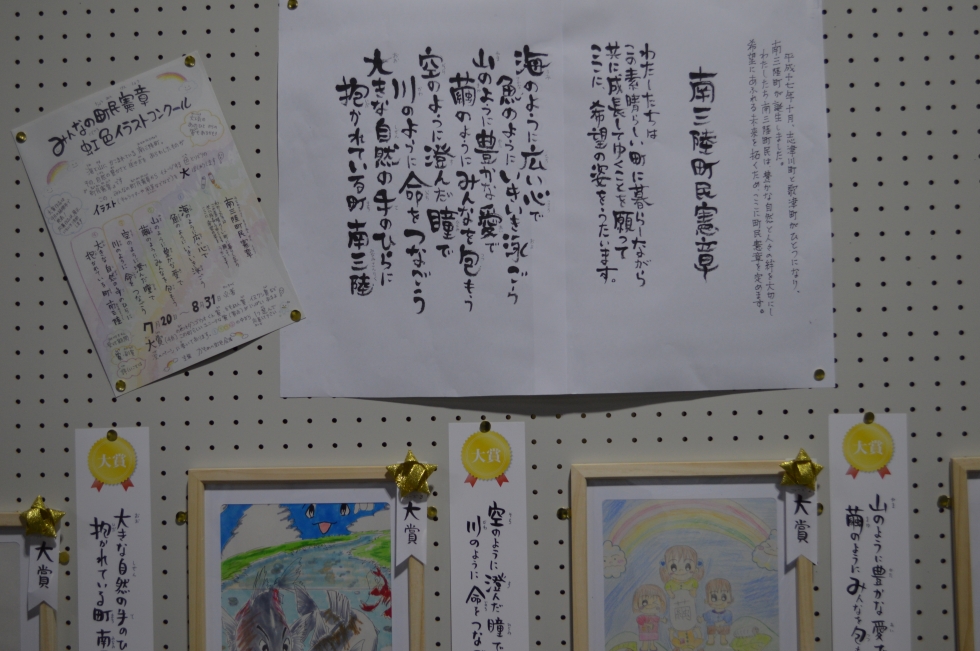 平成十七年十月、志津川町と歌津町がひとつになり、
南三陸町が誕生しました。
わたしたち南三陸町民は豊かな自然と人との絆を大切にし
希望にあふれる未来を拓くため、ここに町民憲章を定めます。
南三陸町民憲章
わたしたちは
この素晴らしい町に暮らしながら
共に成長してゆくことを願って
ここに、希望の姿をうたいます。
海のように広い心で
魚のようにいきいき泳ごう
山のように豊かな愛で
繭のようにみんなを包もう
空のように澄んだ瞳で
川のように命をつなごう
大きな自然の手のひらに
抱かれている町 南三陸
みんなの町民憲章
虹色イラストコンクール
南三陸町民憲章
海のように広い心で
空のように澄んだ瞳で
川のように命をつなごう
大きな自然の手のひらに
抱かれている町 南三陸
7/20
8/31
大賞
大賞
大きな自然の手のひ
抱かれている町 南
大賞
大賞
大賞
空のように澄んだ瞳で
川のように命をつな
大賞
大賞
山のように豊かな愛で
繭のようにみんなを包も